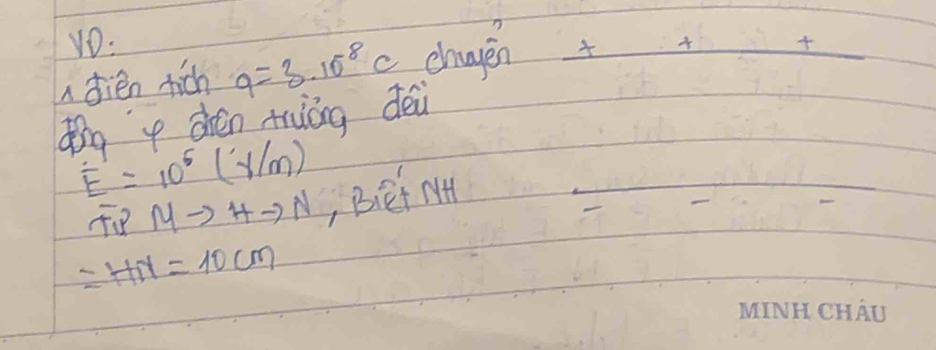 VD:
1 điện tích q = 3.10⁻⁸ C chuyển
động φ điện trường đều
E = 10⁵ (V/m)
Từ M → H → N, Biết NH
= HM = 10 cm
+ + +
- - -
MINH CHÂU